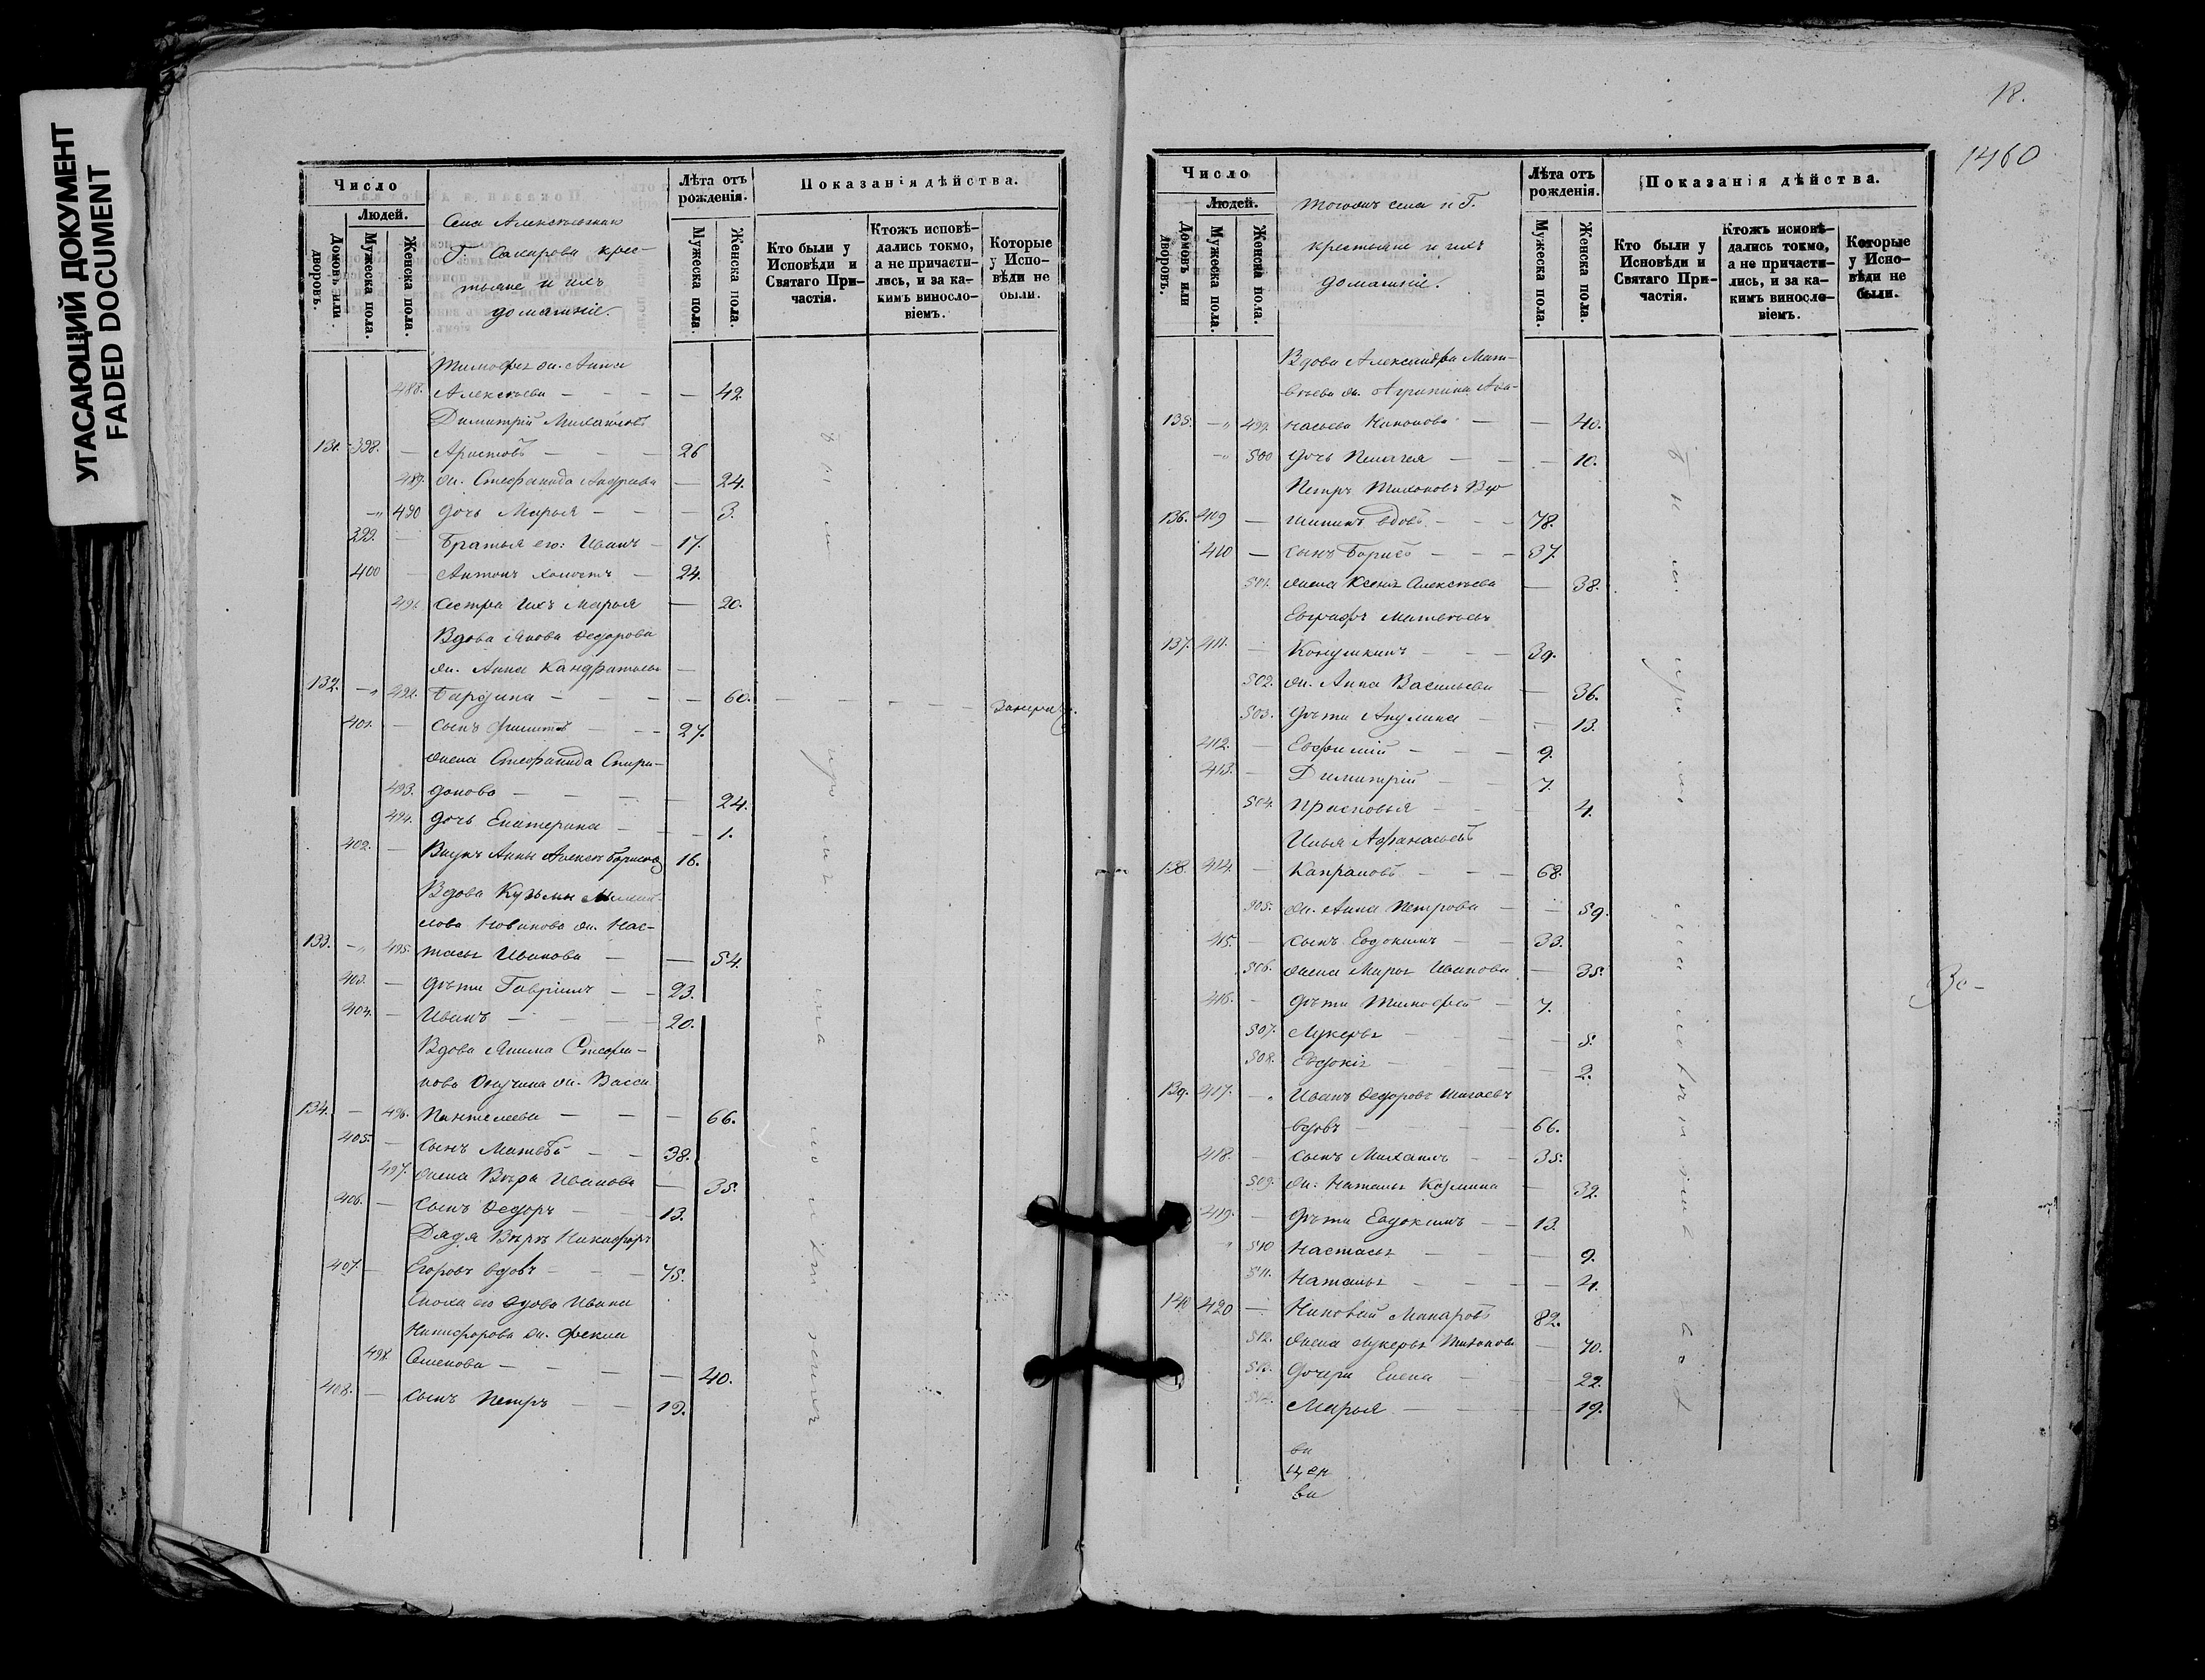 УГАСАЮЩИЙ ДОКУМЕНТ
FADED DOCUMENT
Число
Людей.
Домовъ или дворовъ.
Мужеска пола.
Женска пола.
крес-
тьяне и ихъ
домашніе.
Лѣта отъ рожденія.
Мужеска пола.
Женска пола.
Показанія дѣйства.
Кто были у Исповѣди и Святаго Причастія.
Ктожъ исповѣдались токмо, а не причастились, и за какимъ винословіемъ.
Которые у Исповѣди не были.
Тимофея ж. Анна
488. Алексѣева — — — — 42
Димитрій Михайловъ
131. 398. — Аристовъ — — — 26
489. ж. Стефанида Андреева — 24.
" 490 дочь Марья — — — 3.
399. — Братья его: Иванъ — 17.
400 — Антонъ холостъ — 24.
491. сестра ихъ Марья — 20.
Вдова Якова Ѳедорова
ж. Анна Кандратьева —
132. — " 492. Бардина — — — — 60.
401. — сынъ Филиппъ — — 27.
жена Стефанида Спири-
493. донова — — — — 24.
494. дочь Екатерина — — 1.
402. — Внукъ Анны Алексѣй Борисовъ 16.
Вдова Кузьмы
Новикова ж. Нас-
133. — " 495. тасья Иванова — — 54.
403. — дѣти Гавріилъ — — 23.
404. — Иванъ — — — — 20.
Вдова Якима Стефа-
нова ж. Васса
134. — 496. Пантелеева — — — 66.
405. — сынъ Матвѣй — — 38.
497. жена Вѣра Иванова — 35.
406. — сынъ Ѳедоръ — — 13.
Дядя Вѣрѣ Никифоръ
407. — Егоровъ вдовъ — — — 75.
Сноха его вдова Ивана
Никифорова ж. Фекла
498. Семенова — — — — 40.
408. — сынъ Петръ — — 19.
18.
1460
Число
Людей.
Домовъ или дворовъ.
Мужеска пола.
Женска пола.
Тогожъ села и Г.
крестьяне и ихъ
домашніе.
Лѣта отъ рожденія.
Мужеска пола.
Женска пола.
Показанія дѣйства.
Кто были у Исповѣди и Святаго Причастія.
Ктожъ исповѣдались токмо, а не причастились, и за какимъ винословіемъ.
Которые у Исповѣди не были.
Вдова Александра Мат-
вѣева ж. Агрипина Афа-
135. — " 499. насьева Никонова — — 40.
— " 500 дочь Пелагея — — — 10.
Петръ Тихоновъ Вер
136. 409 — шининъ вдовъ — — — 78.
410 — сынъ Борисъ — — — 37.
501. жена Ксенья Алексѣева — 38.
Евграфъ Матвѣевъ
137. 411. — Конушкинъ — — — 39.
502. ж. Анна Васильева — 36.
503. дѣти Акулина — — 13.
412. — Евфимій — — — 9.
413. — Димитрій — — 7.
504. Прасковья — — — 4.
Илья Афанасьевъ
138. 414. — Капрановъ — — — 68.
505. ж. Анна Петрова — — 59.
415. — сынъ Евдокимъ — — 33.
506. жена Марья Иванова — 35.
416. — дѣти Тимофей — 7.
507. Лукерья — — — — 5.
508. Евдокія — — — — 2.
139. 417. — " Иванъ Ѳедоровъ
вдовъ — — — — 66.
418. — сынъ Михаилъ — — 35.
509. ж. Наталья Козмина — 32.
419. — дѣти Евдокимъ — — 13.
" 510 Настасья — — — — 9.
511. Наталья — — — — 4.
140 420 — Макаровъ 82.
512. жена Лукерья Тихонова — 70.
513. дочери Елена — — — 22.
514. Марья — — — — 19.